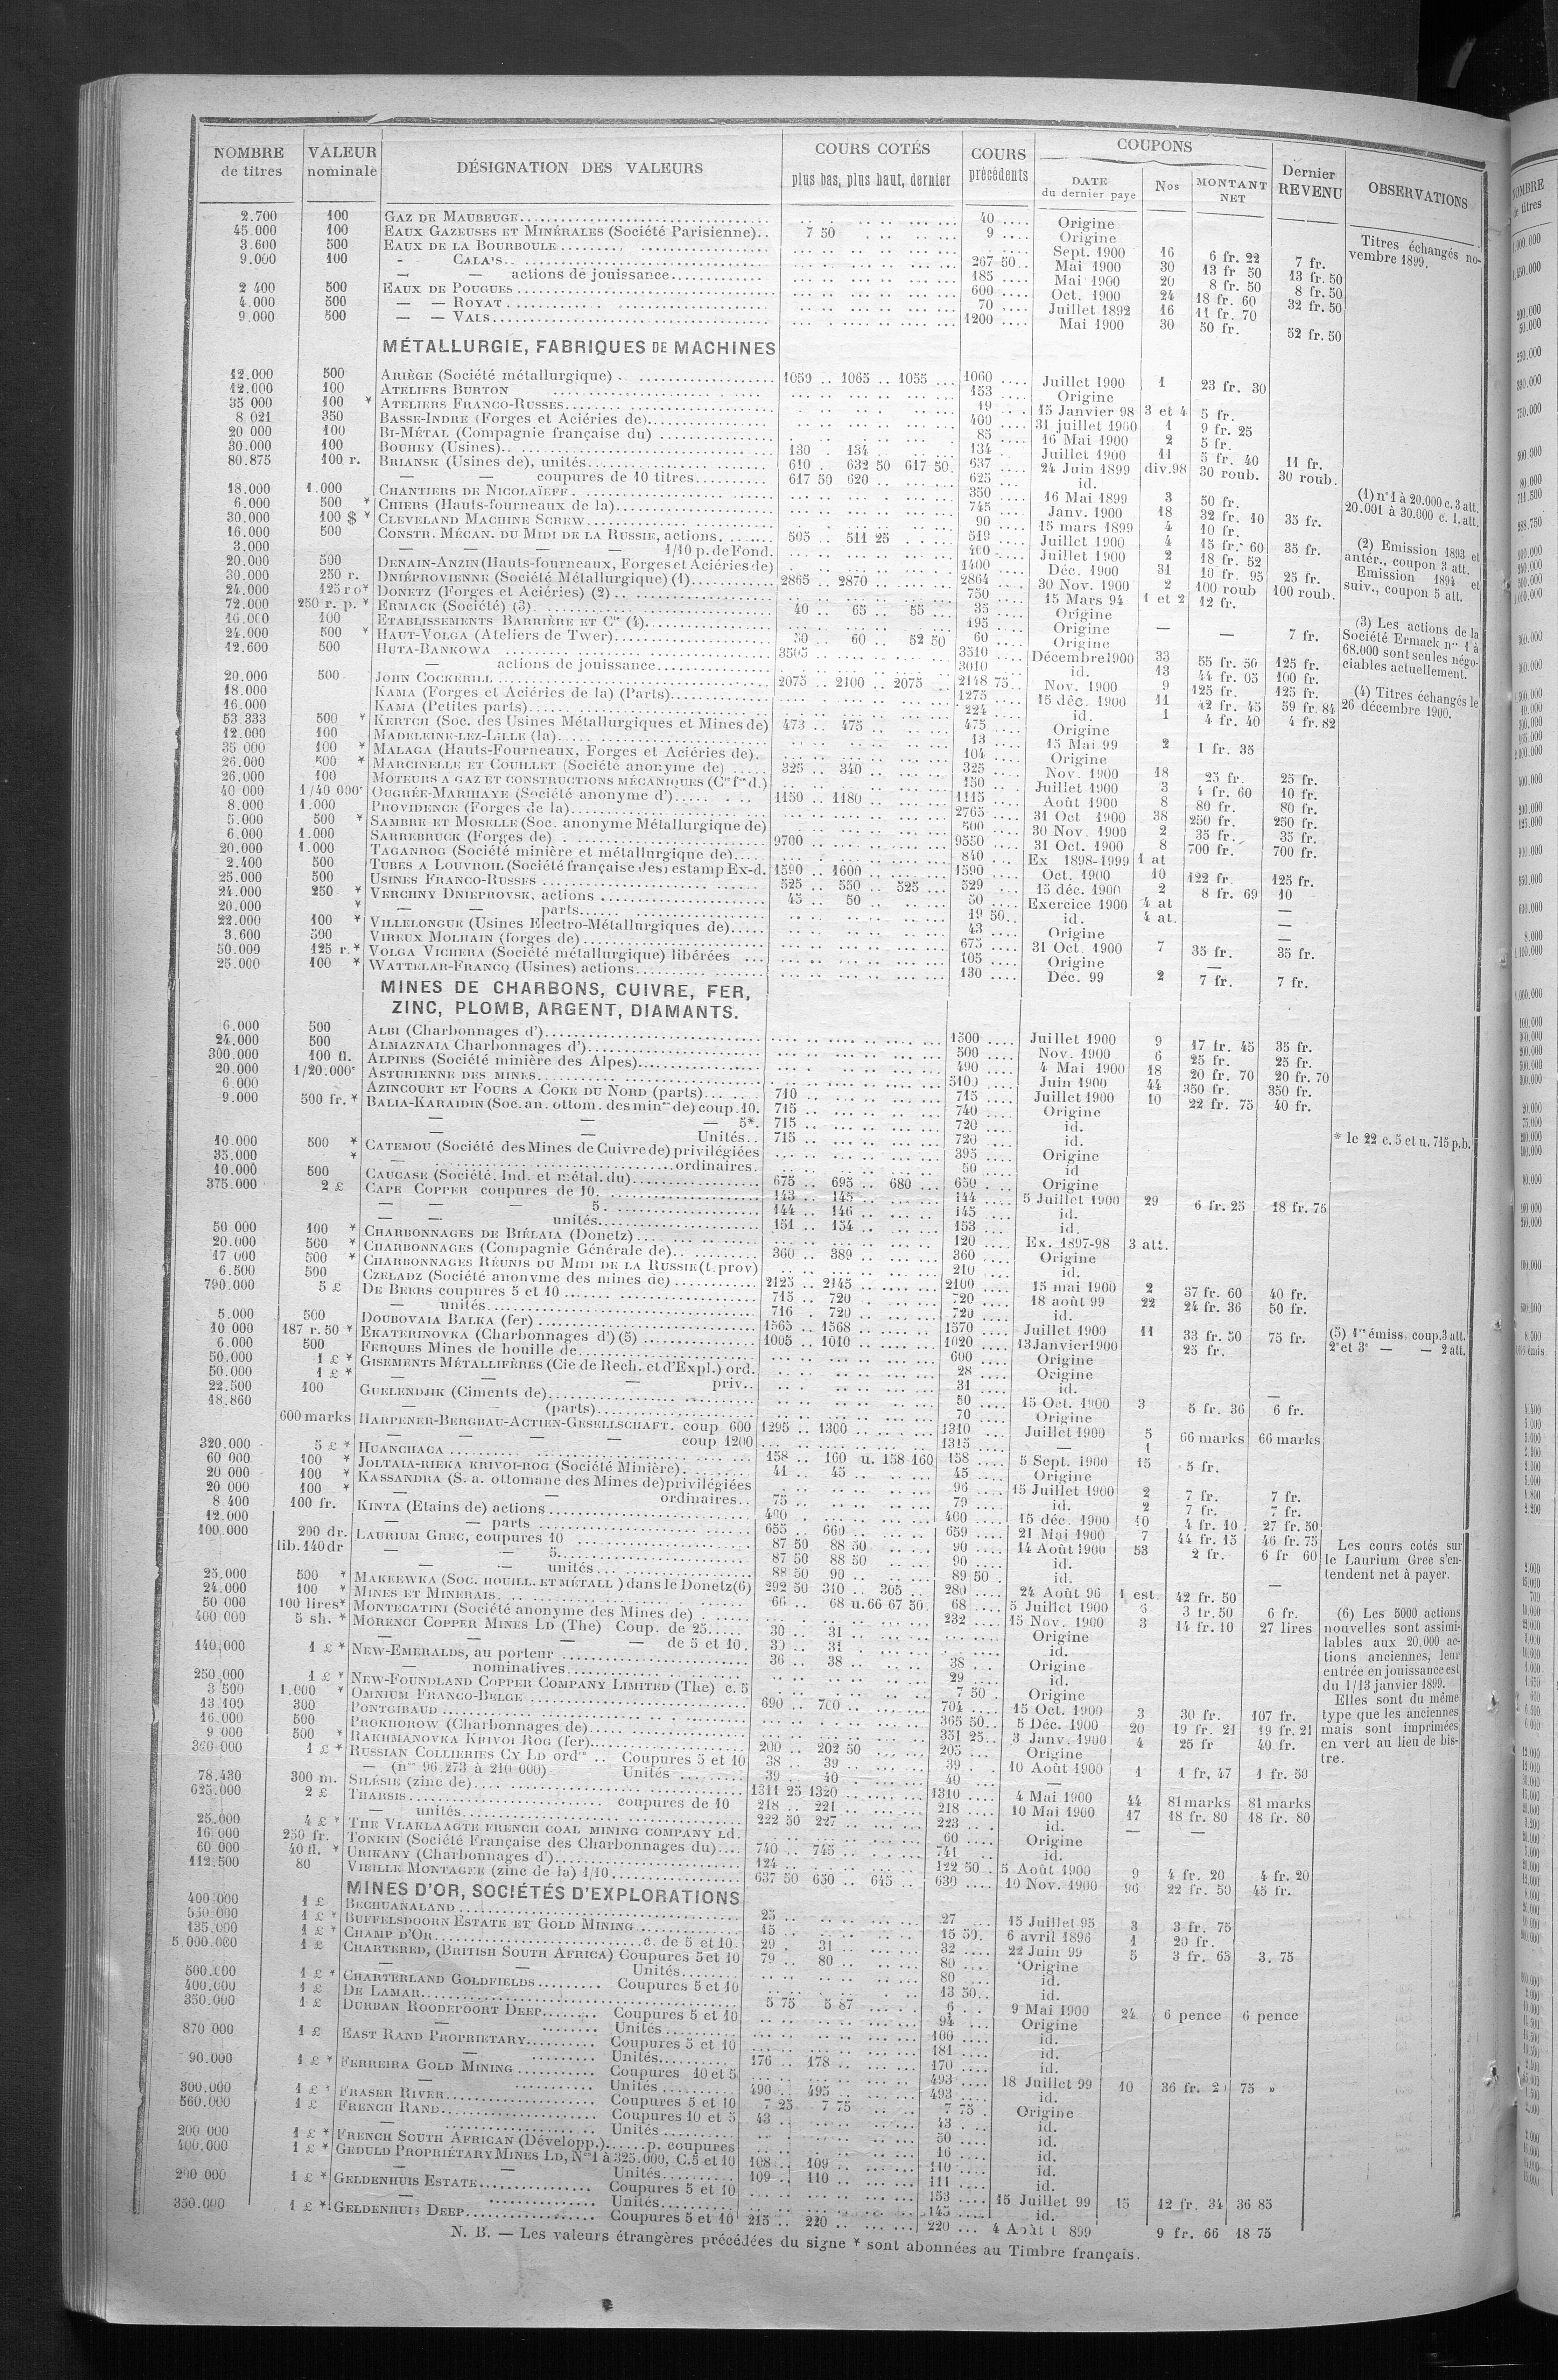 NOMBRE de titres | VALEUR nominale | DÉSIGNATION DES VALEURS | COURS COTÉS plus bas, plus haut, dernier | COURS précédents | COUPONS DATE du dernier paye | Nos | MONTANT NET | Dernier REVENU | OBSERVATIONS
2.700 100 GAZ DE MAUBEUGE 40 Origine
45.000 100 EAUX GAZEUSES ET MINÉRALES (Société Parisienne) 7 50 9 Origine
3.600 500 EAUX DE LA BOURBOULE Sept. 1900 16 6 fr. 22 7 fr. Titres échangés novembre 1899.
9.000 100 - CALAIS 267 50 Mai 1900 30 13 fr 50 13 fr. 50
— — actions de jouissance 185 Mai 1900 20 8 fr. 50 8 fr. 50
2 400 500 EAUX DE POUGUES 600 Oct. 1900 24 18 fr. 60 32 fr. 50
4.000 500 — — ROYAT 70 Juillet 1892 16 11 fr. 70
9.000 500 — — VALS 1200 Mai 1900 30 50 fr. 52 fr. 50
MÉTALLURGIE, FABRIQUES DE MACHINES
12.000 500 ARIÈGE (Société métallurgique) 1050 1065 1055 1060 Juillet 1900 1 23 fr. 30
12.000 100 ATELIERS BURTON 153 Origine
35 000 100 * ATELIERS FRANCO-RUSSES 19 15 Janvier 98 3 et 4 5 fr.
8 021 350 BASSE-INDRE (Forges et Aciéries de) 400 31 juillet 1900 1 9 fr. 25
20 000 100 BI-MÉTAL (Compagnie française du) 85 16 Mai 1900 2 5 fr.
30.000 100 BOUHEY (Usines) 130 134 134 Juillet 1900 11 5 fr. 40 11 fr.
80.875 100 r. BRIANSK (Usines de), unités 610 632 50 617 50 637 24 Juin 1899 div.98 30 roub. 30 roub.
— — coupures de 10 titres 617 50 620 625 id.
18.000 1.000 CHANTIERS DE NICOLAÏEFF 350 16 Mai 1899 3 50 fr.
6.000 500 * CHIERS (Hauts-fourneaux de la) 745 Janv. 1900 18 32 fr. 10 35 fr.
30.000 100 $ * CLEVELAND MACHINE SCREW 90 15 mars 1899 4 10 fr.
16.000 500 CONSTR. MÉCAN. DU MIDI DE LA RUSSIE, actions 505 511 25 519 Juillet 1900 4 15 fr. 60 35 fr.
3.000 — — — — 1/10 p. de Fond. 400 Juillet 1900 2 18 fr. 52
20.000 500 DENAIN-ANZIN (Hauts-fourneaux, Forges et Aciéries de) 1400 Déc. 1900 31 10 fr. 95 25 fr.
30.000 250 r. DNIÉPROVIENNE (Société Métallurgique) (1) 2865 2870 2864 30 Nov. 1900 2 100 roub 100 roub.
24.000 125 r o* DONETZ (Forges et Aciéries) (2) 750 15 Mars 94 1 et 2 12 fr.
72.000 250 r. p. * ERMACK (Société) (3) 40 65 55 35 Origine
16.000 100 ETABLISSEMENTS BARRIÈRE ET Cie (4) 195 Origine — — 7 fr.
24.000 500 * HAUT-VOLGA (Ateliers de Twer) 50 60 52 50 60 Origine
12.600 500 HUTA-BANKOWA 3505 3510 Décembre 1900 33 55 fr. 50 125 fr.
— actions de jouissance 3010 id. 13 44 fr. 05 100 fr.
20.000 500 JOHN COCKERILL 2075 2100 2075 2148 75 Nov. 1900 9 125 fr. 125 fr.
18.000 KAMA (Forges et Aciéries de la) (Parts) 1275 15 déc. 1900 11 42 fr. 45 59 fr. 84
16.000 KAMA (Petites parts) 224 id. 1 4 fr. 40 4 fr. 82
53.333 500 * KERTCH (Soc. des Usines Métallurgiques et Mines de) 473 475 475 Origine
12.000 100 MADELEINE-LEZ-LILLE (la) 13 15 Mai 99 2 1 fr. 35
35 000 100 * MALAGA (Hauts-Fourneaux, Forges et Aciéries de) 104 Origine
26.000 500 * MARCINELLE ET COUILLET (Société anonyme de) 325 340 325 Nov. 1900 18 25 fr. 25 fr.
26.000 100 MOTEURS A GAZ ET CONSTRUCTIONS MÉCANIQUES (Cie fse d.) 150 Juillet 1900 3 4 fr. 60 10 fr.
40 000 1/40 000e OUGRÉE-MARIHAYE (Société anonyme d') 1150 1180 1145 Août 1900 8 80 fr. 80 fr.
8.000 1.000 PROVIDENCE (Forges de la) 2765 31 Oct 1900 38 250 fr. 250 fr.
5.000 500 * SAMBRE ET MOSELLE (Soc. anonyme Métallurgique de) 500 30 Nov. 1900 2 35 fr. 35 fr.
6.000 1.000 SARREBRUCK (Forges de) 9700 9550 31 Oct. 1900 8 700 fr. 700 fr.
20.000 1.000 TAGANROG (Société minière et métallurgique de) 840 Ex 1898-1999 1 at
2.400 500 TUBES A LOUVROIL (Société française des) estamp Ex-d. 1590 1600 1590 Oct. 1900 10 122 fr. 125 fr.
25.000 500 USINES FRANCO-RUSSES 525 550 525 529 15 déc. 1900 2 8 fr. 69 10
24.000 250 * VERCHNY DNIEPROVSK, actions 45 50 50 Exercice 1900 4 at
20.000 * — — parts 19 50 id. 4 at. —
22.000 100 * VILLELONGUE (Usines Electro-Métallurgiques de) 43 Origine —
3.600 500 VIREUX MOLHAIN (forges de) 675 31 Oct. 1900 7 35 fr. 35 fr.
50.000 125 r. * VOLGA VICHERA (Société métallurgique) libérées 105 Origine —
25.000 100 * WATTELAR-FRANCQ (Usines) actions 130 Déc. 99 2 7 fr. 7 fr.
(1) n° 1 à 20.000 c. 3 att. 20.001 à 30.000 c. 1. att.
(2) Emission 1893 et antér., coupon 3 att. Emission 1894 et suiv., coupon 5 att.
(3) Les actions de la Société Ermack nos 1 à 68.000 sont seules négociables actuellement.
(4) Titres échangés le 26 décembre 1900.
MINES DE CHARBONS, CUIVRE, FER,
ZINC, PLOMB, ARGENT, DIAMANTS.
6.000 500 ALBI (Charbonnages d') 1500 Juillet 1900 9 17 fr. 45 35 fr.
24.000 500 ALMAZNAIA Charbonnages d') 500 Nov. 1900 6 25 fr. 25 fr.
300.000 100 fl. ALPINES (Société minière des Alpes) 490 4 Mai 1900 18 20 fr. 70 20 fr. 70
20.000 1/20.000e ASTURIENNE DES MINES 5100 Juin 1900 44 350 fr. 350 fr.
6.000 AZINCOURT ET FOURS A COKE DU NORD (parts) 710 715 Juillet 1900 10 22 fr. 75 40 fr.
9.000 500 fr. * BALIA-KARAIDIN (Soc. an. ottom. des mines de) coup. 10. 715 740 Origine
— — — 5*. 715 720 id.
— — Unités 715 720 id. * le 22 c. 5 et u. 715 p.b.
10.000 500 * CATEMOU (Société des Mines de Cuivre de) privilégiées 395 Origine
35.000 * — ordinaires. 50 id
10.000 500 CAUCASE (Société. Ind. et métal. du) 675 695 680 650 Origine
375.000 2 £ CAPE COPPER coupures de 10. 143 145 144 5 Juillet 1900 29 6 fr. 25 18 fr. 75
— — — 5. 144 146 145 id.
— — unités 151 154 153 id.
50 000 100 * CHARBONNAGES DE BIÉLAIA (Donetz) 120 Ex. 1897-98 3 att.
20.000 500 * CHARBONNAGES (Compagnie Générale de) 360 389 360 Origine
17 000 500 * CHARBONNAGES RÉUNIS DU MIDI DE LA RUSSIE (t. prov) 210 id.
6.500 500 CZELADZ (Société anonyme des mines de) 2125 2145 2100 15 mai 1900 2 37 fr. 60 40 fr.
790.000 5 £ DE BEERS coupures 5 et 10 715 720 720 18 août 99 22 24 fr. 36 50 fr.
— unités 716 720 720 id.
5.000 500 DOUBOVAIA BALKA (fer) 1565 1568 1570 Juillet 1900 11 33 fr. 50 75 fr.
10 000 187 r. 50 * EKATERINOVKA (Charbonnages d') (5) 1005 1010 1020 13 Janvier 1900 25 fr. (5) 1re émiss. coup. 3 att. 2e et 3e — — 2 att.
6.000 500 FERQUES Mines de houille de 600 Origine
50.000 1 £ * GISEMENTS MÉTALLIFÈRES (Cie de Rech. et d'Expl.) ord. 28 Origine
50.000 1 £ * — — — priv. 31 id.
22.500 100 GUELENDJIK (Ciments de) 50 15 Oct. 1900 3 5 fr. 36 6 fr.
18.860 — (parts) 70 Origine
600 marks HARPENER-BERGBAU-ACTIEN-GESELLSCHAFT. coup 600 1295 1300 1310 Juillet 1900 5 66 marks 66 marks
— — — — coup 1200 1315 — 1
320.000 5 £ * HUANCHACA 158 160 u. 158 160 158 5 Sept. 1900 15 5 fr.
60 000 100 * JOLTAIA-RIEKA KRIVOI-ROG (Société Minière) 41 45 45 Origine
20 000 100 * KASSANDRA (S. a. ottomane des Mines de) privilégiées 96 15 Juillet 1900 2 7 fr. 7 fr.
20 000 100 * — — ordinaires 75 79 id. 2 7 fr. 7 fr.
8.400 100 fr. KINTA (Etains de) actions 400 400 15 déc. 1900 10 4 fr. 10 27 fr. 50
12.000 — — parts 655 660 659 21 Mai 1900 7 44 fr. 15 46 fr. 75
100.000 200 dr. LAURIUM GREC, coupures 10 87 50 88 50 90 14 Août 1900 53 2 fr. 6 fr 60
lib. 140 dr — — 5 87 50 88 50 90 id.
— — unités 88 50 90 89 50 id.
Les cours cotés sur le Laurium Grec s'entendent net à payer.
25.000 500 * MAKEEWKA (Soc. HOUILL. ET MÉTALL.) dans le Donetz (6) 292 50 310 305 280 24 Août 96 1 est. 42 fr. 50
24.000 100 * MINES ET MINERAIS 66 68 u. 66 67 50 68 5 Juillet 1900 6 3 fr. 50 6 fr.
50 000 100 lires* MONTECATINI (Société anonyme des Mines de) 232 15 Nov. 1900 3 14 fr. 10 27 lires
400 000 5 sh. * MORENCI COPPER MINES LD (The) Coup. de 25 30 31 Origine
— — — — de 5 et 10. 30 31 id.
140,000 1 £ * NEW-EMERALDS, au porteur 36 38 38 Origine
— nominatives 29 id.
250.000 1 £ * NEW-FOUNDLAND COPPER COMPANY LIMITED (The) c. 5 7 50 Origine
3 500 1.000 * OMNIUM FRANCO-BELGE 690 700 704 15 Oct. 1900 3 30 fr. 107 fr.
13.100 300 PONTGIBAUD 365 50 5 Déc. 1900 20 19 fr. 21 19 fr. 21
16.000 500 PROKHOROW (Charbonnages de) 351 25 3 Janv. 1900 4 25 fr 40 fr.
9 000 500 * RAKHMANOVKA KRIVOI ROG (fer) 200 202 50 205 Origine
360.000 1 £ * RUSSIAN COLLIERIES CY LD ordres Coupures 5 et 10 38 39 39 10 Août 1900 1 1 fr. 47 1 fr. 50
— (nos 96.273 à 210 000) Unités 39 40 40 —
(6) Les 5000 actions nouvelles sont assimilables aux 20.000 actions anciennes, leur entrée en jouissance est du 1/13 janvier 1899.
Elles sont du même type que les anciennes mais sont imprimées en vert au lieu de bistre.
78.430 300 m. SILÉSIE (zinc de) 1311 25 1320 1310 4 Mai 1900 44 81 marks 81 marks
625.000 2 £ THARSIS coupures de 10 218 221 218 10 Mai 1900 17 18 fr. 80 18 fr. 80
— unités 222 50 227 223 id. — —
25.000 4 £ * THE VLAKLAAGTE FRENCH COAL MINING COMPANY Ld. 60 Origine
16 000 250 fr. TONKIN (Société Française des Charbonnages du) 740 745 741 id.
60 000 40 fl. * URIKANY (Charbonnages d') 124 122 50 5 Août 1900 9 4 fr. 20 4 fr. 20
112.500 80 VIEILLE MONTAGNE (zinc de la) 1/10 637 50 650 645 630 10 Nov. 1900 96 22 fr. 50 45 fr.
MINES D'OR, SOCIÉTÉS D'EXPLORATIONS
400 000 1 £ BECHUANALAND 25 27 15 Juillet 95 3 3 fr. 75
550 000 1 £ * BUFFELSDOORN ESTATE ET GOLD MINING 15 15 50 6 avril 1896 1 20 fr.
135.000 1 £ * CHAMP D'OR c. de 5 et 10. 29 31 32 22 Juin 99 5 3 fr. 65 3. 75
5.000.000 1 £ CHARTERED, (BRITISH SOUTH AFRICA) Coupures 5 et 10 79 80 80 Origine
— — Unités 80 id.
500.000 1 £ * CHARTERLAND GOLDFIELDS Coupures 5 et 10 13 50 id.
400.000 1 £ DE LAMAR 5 75 5 87 6 9 Mai 1900 24 6 pence 6 pence
350.000 1 £ DURBAN ROODEPOORT DEEP Coupures 5 et 10 94 Origine
— Unités 100 id.
870 000 1 £ EAST RAND PROPRIETARY Coupures 5 et 10 181 id.
— Unités 176 178 170 id.
90.000 1 £ * FERREIRA GOLD MINING Coupures 10 et 5 493 18 Juillet 99 10 36 fr. 75 »
— Unités 490 495 493 id.
300.000 1 £ * FRASER RIVER Coupures 5 et 10 7 25 7 75 7 75 Origine
560.000 1 £ FRENCH RAND Coupures 10 et 5 43 43 id.
— Unités 50 id.
200 000 1 £ * FRENCH SOUTH AFRICAN (Développ.) p. coupures 16 id.
400.000 1 £ * GEDULD PROPRIÉTARY MINES LD, Nos 1 à 325.000, C. 5 et 10 108 109 110 id.
— — Unités 109 110 111 id.
200 000 1 £ * GELDENHUIS ESTATE Coupures 5 et 10 153 15 Juillet 99 15 12 fr. 34 36 85
— Unités 145 id.
350.000 1 £ * GELDENHUIS DEEP Coupures 5 et 10 215 220 220 4 Août 1899 9 fr. 66 18 75
N. B. — Les valeurs étrangères précédées du signe * sont abonnées au Timbre français.